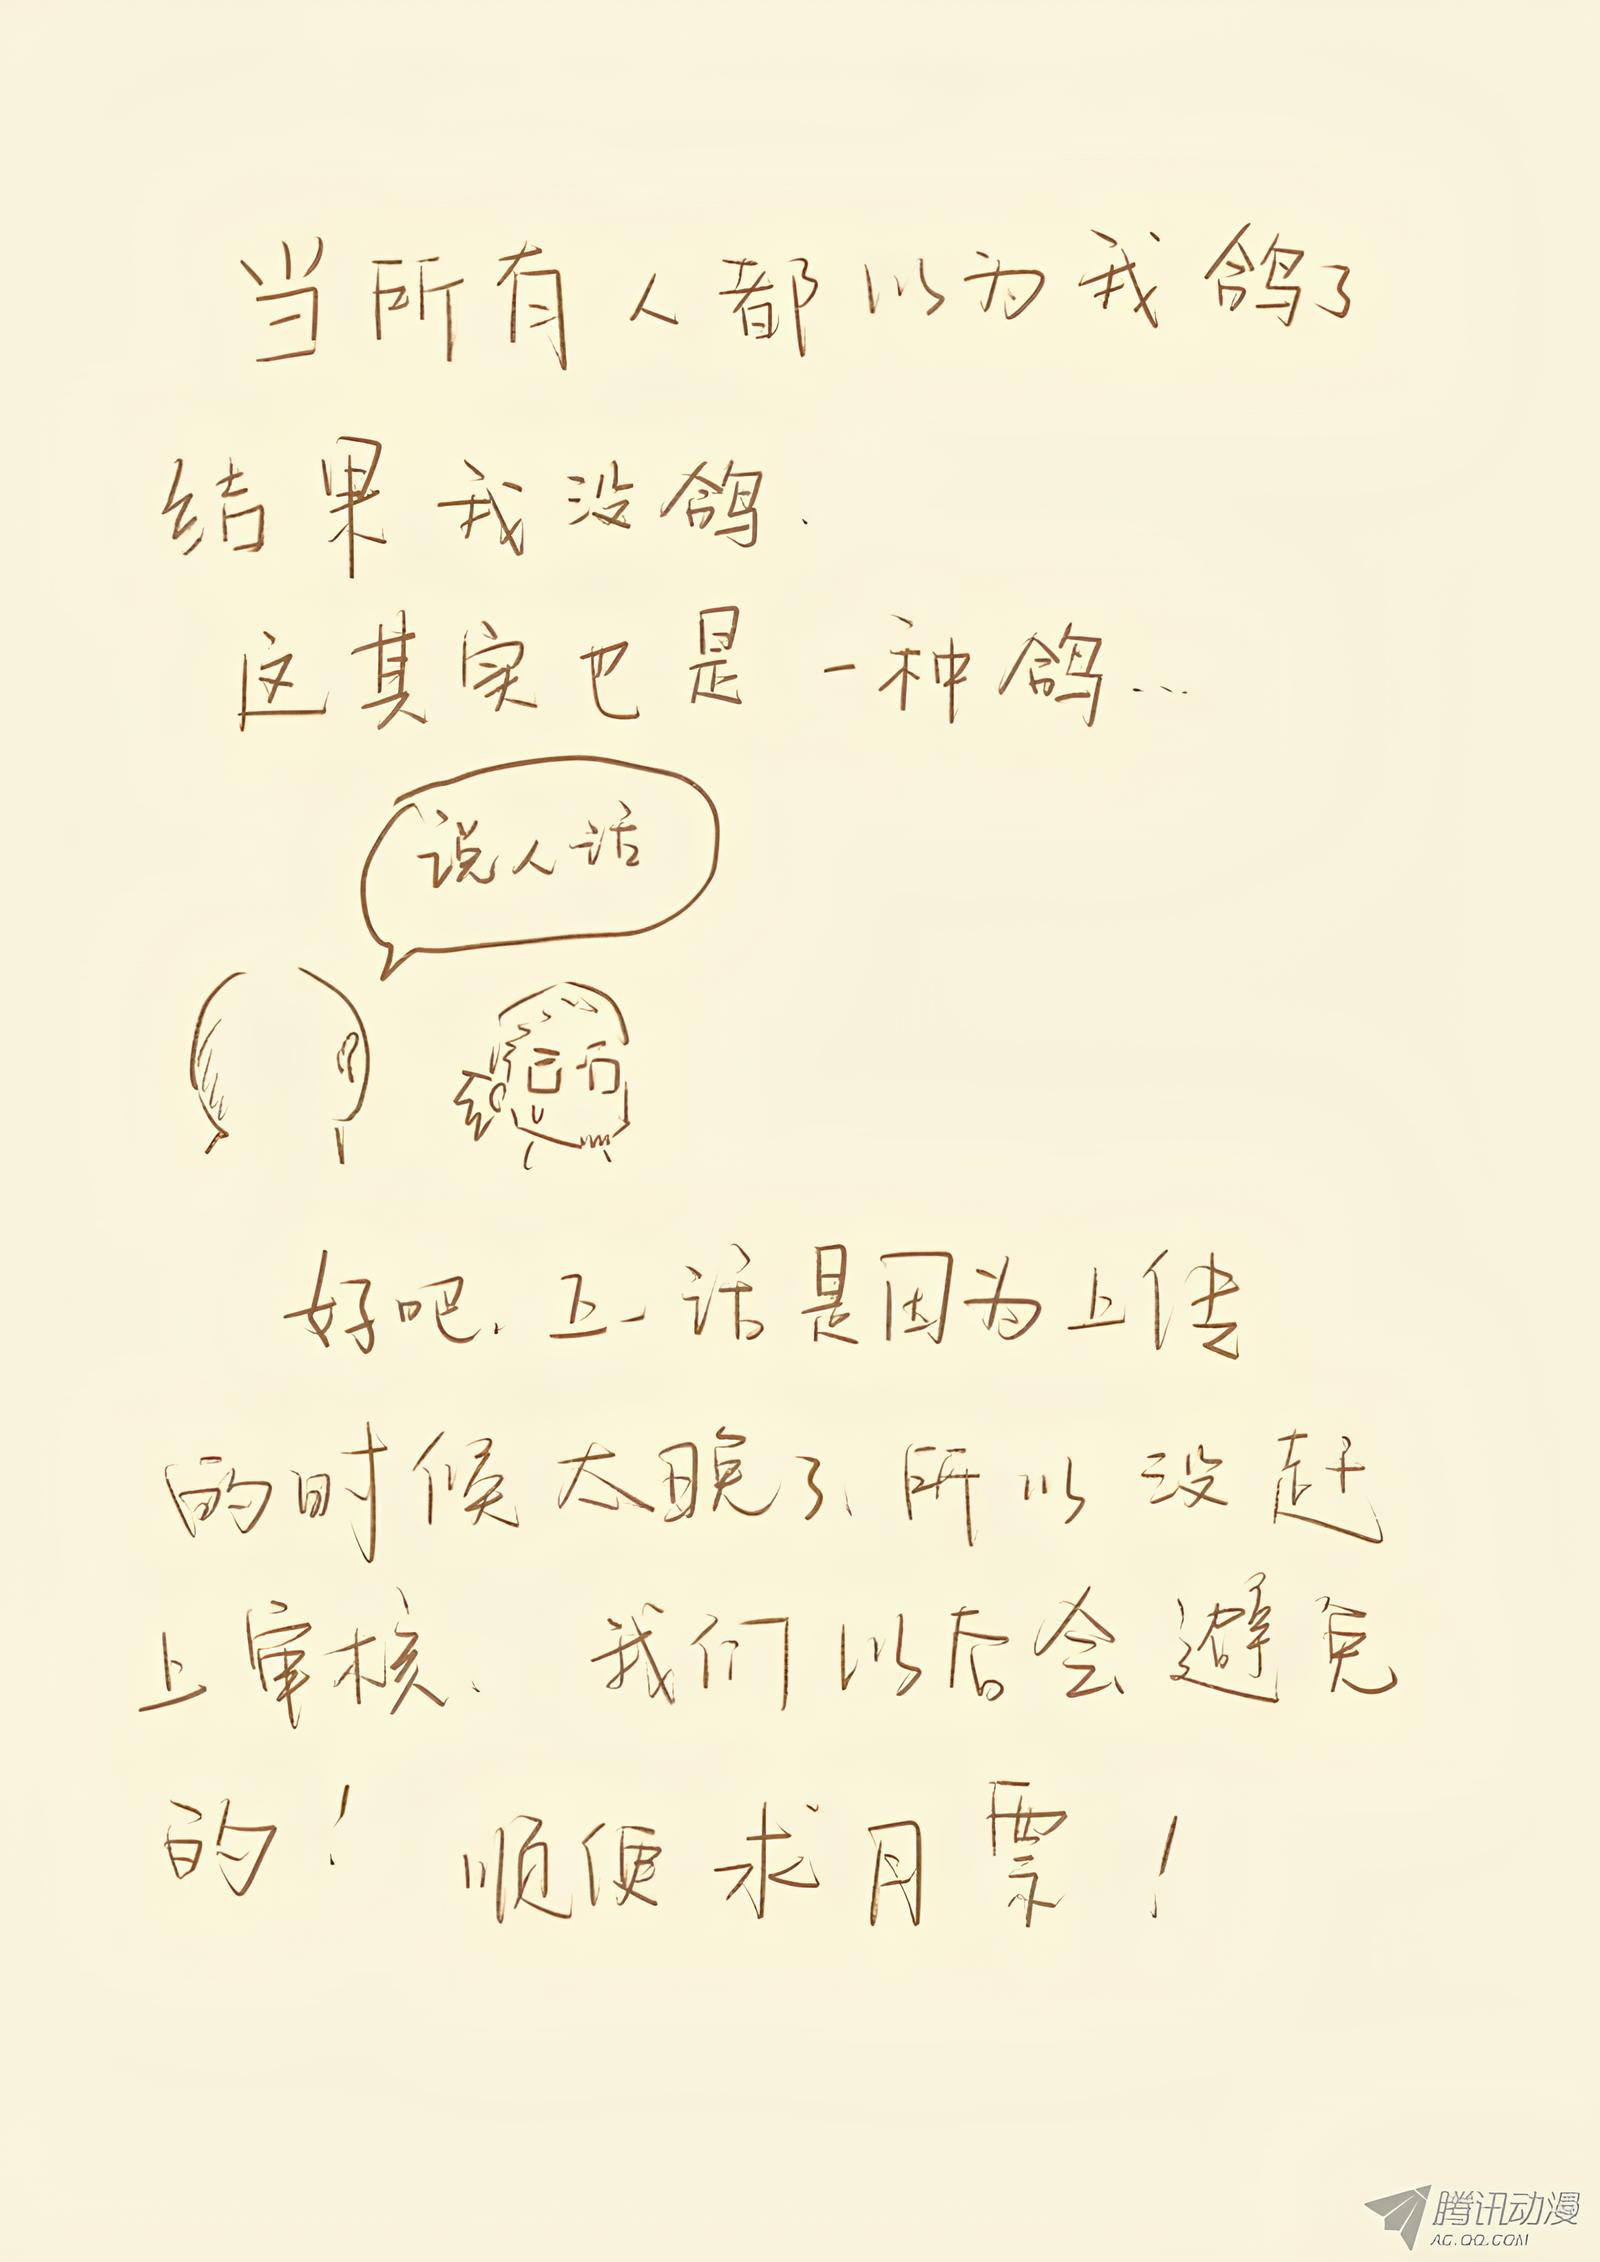 当所有人都以为我鸽了
结果我没鸽.
这其实也是一种鸽...
说人话
好吧.上一话是因为上传
的时候太晚了、所以没赶
上审核、我们以后会避免
的！顺便求月票！
腾讯动漫
AC.QQ.COM